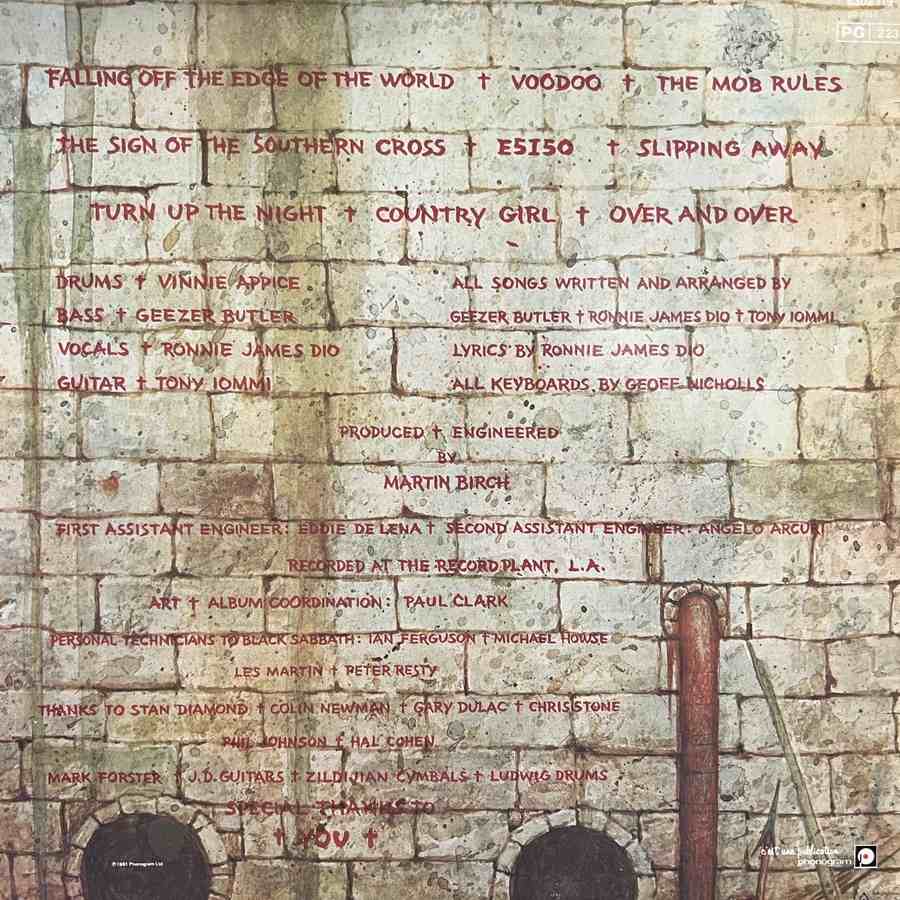 PG 223
FALLING OFF THE EDGE OF THE WORLD † VOODOO † THE MOB RULES
THE SIGN OF THE SOUTHERN CROSS † E5150 † SLIPPING AWAY
TURN UP THE NIGHT † COUNTRY GIRL † OVER AND OVER
DRUMS † VINNIE APPICE
BASS † GEEZER BUTLER
VOCALS † RONNIE JAMES DIO
GUITAR † TONY IOMMI
ALL SONGS WRITTEN AND ARRANGED BY
GEEZER BUTLER † RONNIE JAMES DIO † TONY IOMMI
LYRICS BY RONNIE JAMES DIO
ALL KEYBOARDS BY GEOFF NICHOLLS
PRODUCED † ENGINEERED
BY
MARTIN BIRCH
FIRST ASSISTANT ENGINEER: EDDIE DE LENA † SECOND ASSISTANT ENGINEER: ANGELO ARCURI
RECORDED AT THE RECORD PLANT, L.A.
ART † ALBUM COORDINATION: PAUL CLARK
PERSONAL TECHNICIANS TO BLACK SABBATH: IAN FERGUSON † MICHAEL HOWSE
LES MARTIN † PETER RESTY
THANKS TO STAN DIAMOND † COLIN NEWMAN † GARY DULAC † CHRIS STONE
PHIL JOHNSON † HAL COHEN
MARK FORSTER † J.D. GUITARS † ZILDIJIAN CYMBALS † LUDWIG DRUMS
SPECIAL THANKS TO
† YOU †
℗ 1981 Phonogram Ltd
c'est une publication
phonogram